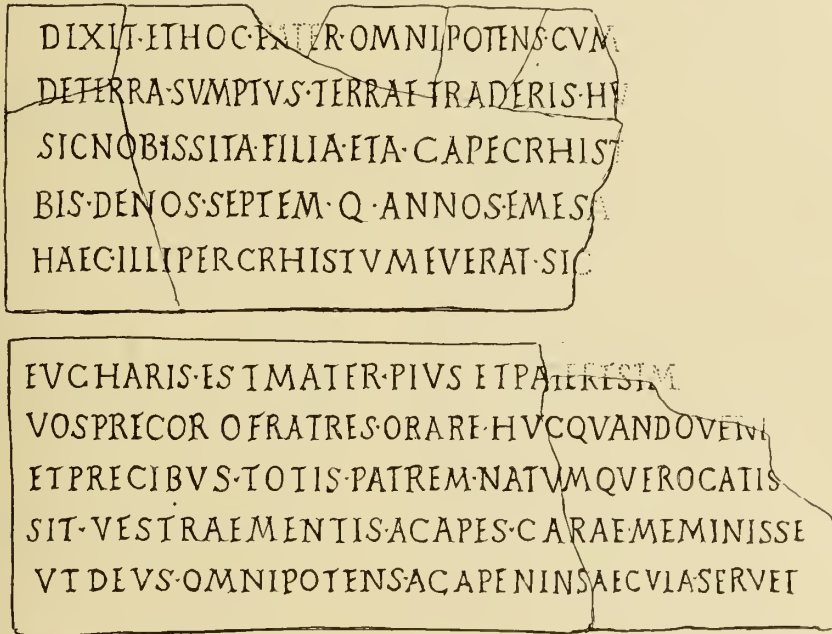 DIXIT·ET HOC·PATER·OMNIPOTENS·CVM
DETERRA·SVMPTVS·TERRAE TRADERIS·HV
SICNOBISSITA·FILIA·ETA·CAPECRHIST
BIS·DENOS·SEPTEM·Q·ANNOS·EMESA
HAEC·ILLI PERCRHISTVM EVERAT·SIC
EVCHARIS·EST MATER·PIVS ET PATERESTM
VOSPRECOR OFRATRES·ORARE·HVCQVANDOVENI
ETPRECIBVS·TOTIS·PATREM·NATVMQVEROCATIS
SIT·VESTRAEMENTIS·ACAPES·CARAE·MEMINISSE
VTDEVS·OMNIPOTENS·ACAPENINSAECVLA·SERVET